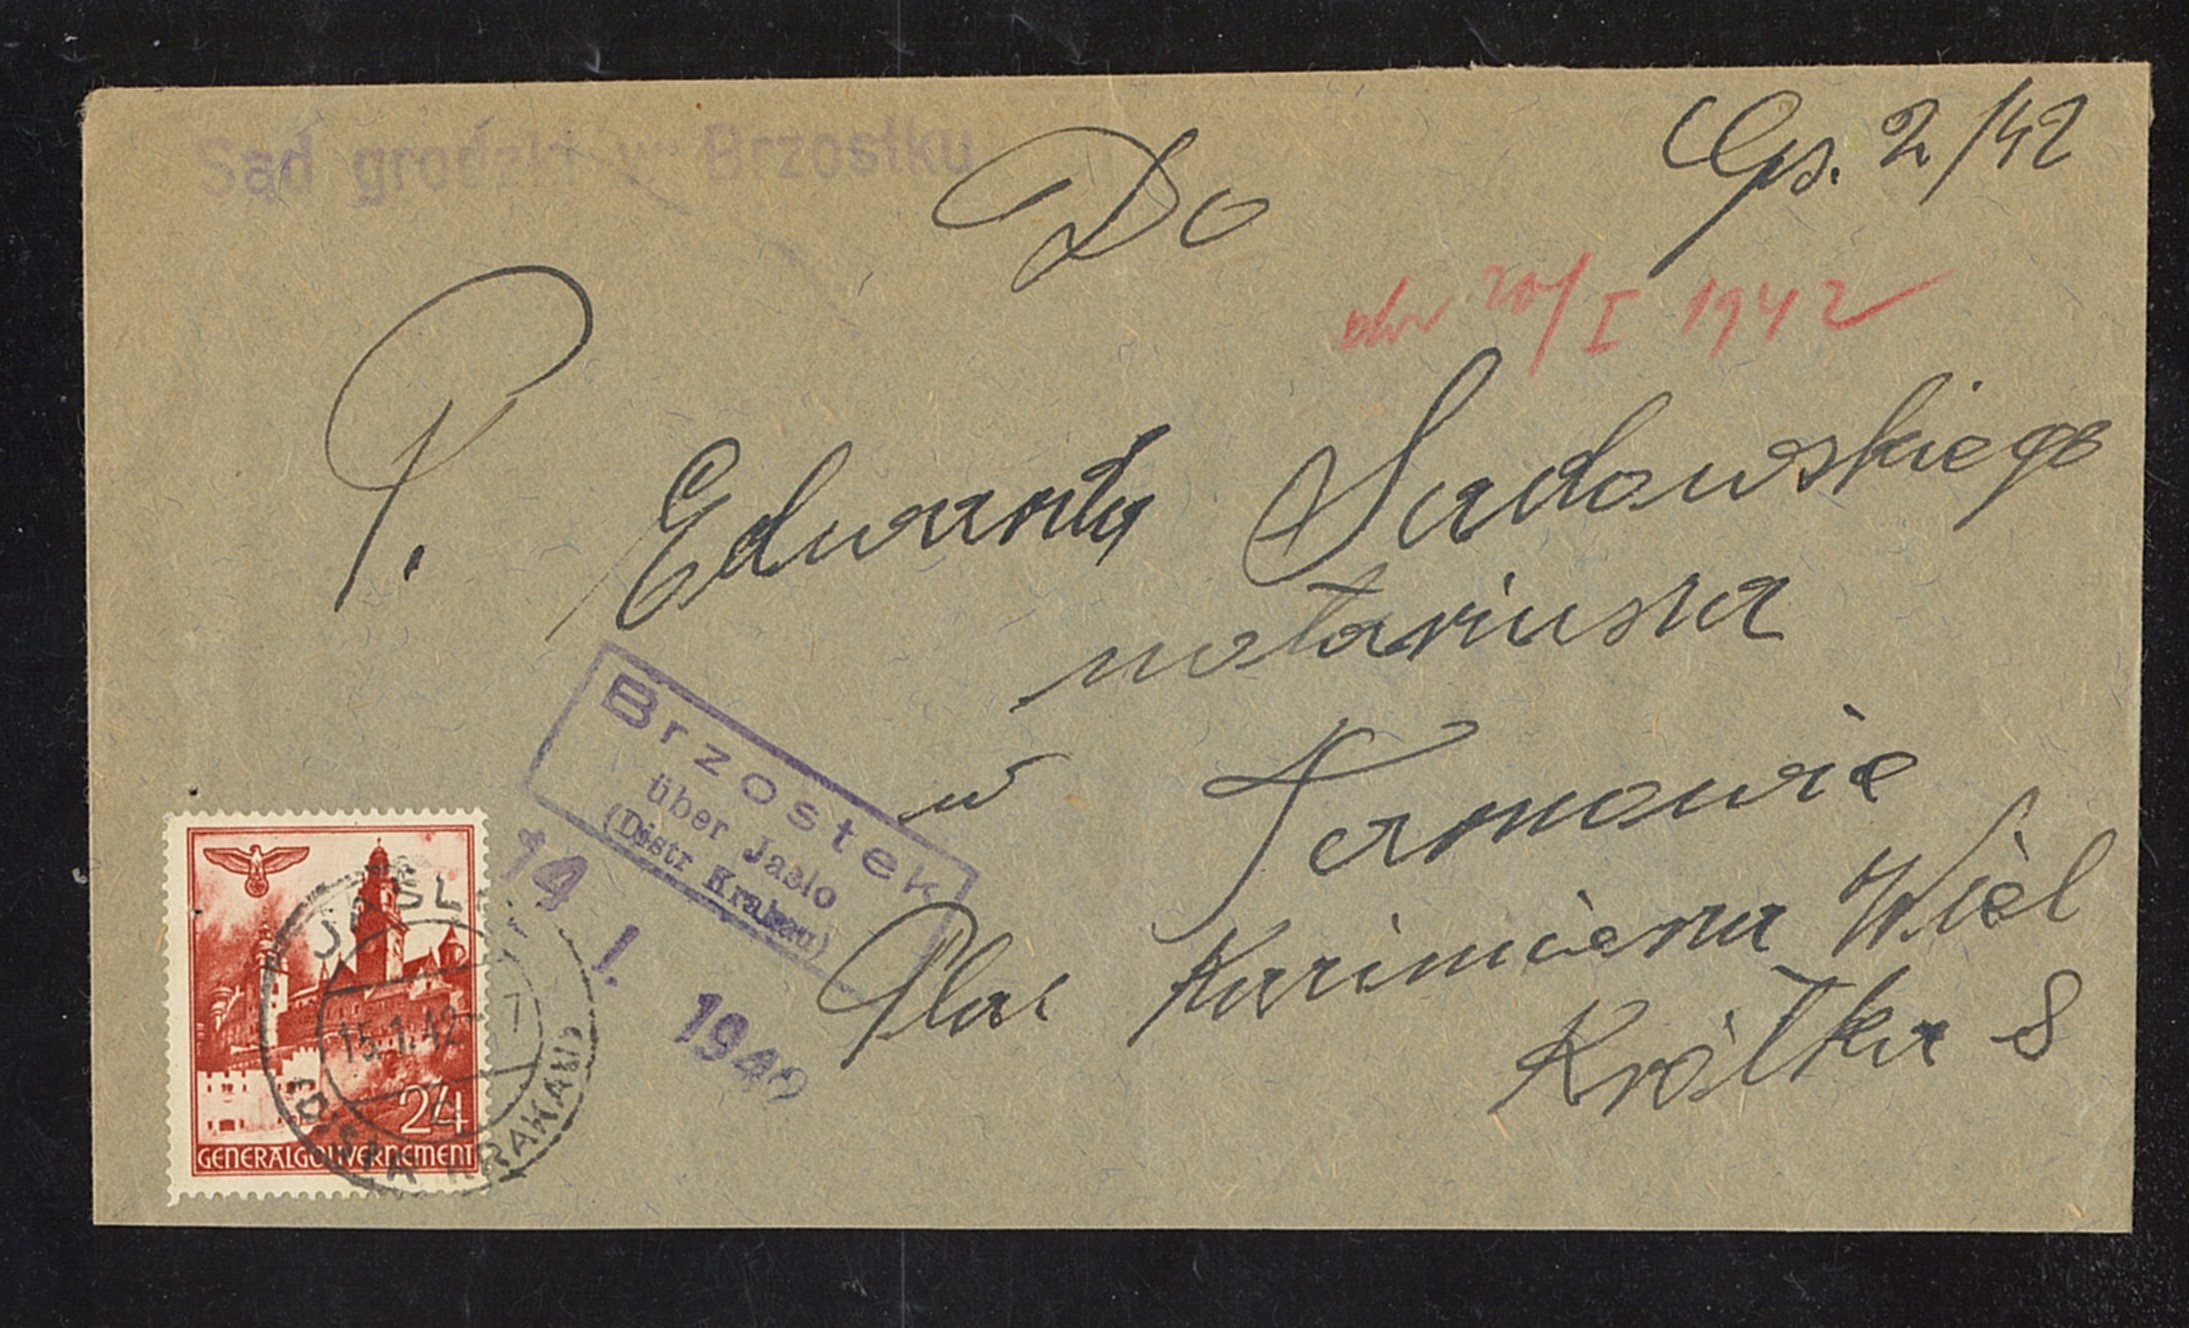 Sąd grodzki w Brzostku
Gs. 2/42
Do
20/I 1942
P. Edwarda Sadowskiego
notariusza
w Tarnowie
Plac Kazimierza Wiel
Krótka 8
Brzostek
über Jaslo
(Distr Krakau)
14 I. 1942
JASLO
15.1.42
(DISTR KRAKAU)
24
GENERALGOUVERNEMENT